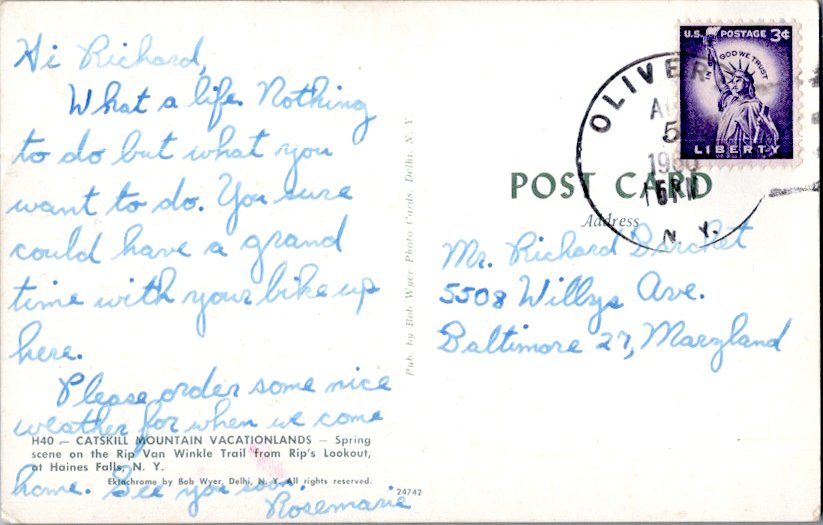 Hi Richard,
What a life. Nothing
to do but what you
want to do. You sure
could have a grand
time with your bike up
here.
Please order some nice
weather for when we come
home. See you soon.
Rosemarie
H40 — CATSKILL MOUNTAIN VACATIONLANDS — Spring
scene on the Rip Van Winkle Trail from Rip's Lookout,
at Haines Falls, N. Y.
Ektachrome by Bob Wyer, Delhi, N. Y. All rights reserved.
24742
Pub. by Bob Wyer Photo Cards, Delhi, N. Y.
U.S. POSTAGE 3¢
IN GOD WE TRUST
LIBERTY
OLIVER
5
PM
N. Y.
POST CARD
Address
Mr. Richard
5508 Willys Ave.
Baltimore 27, Maryland